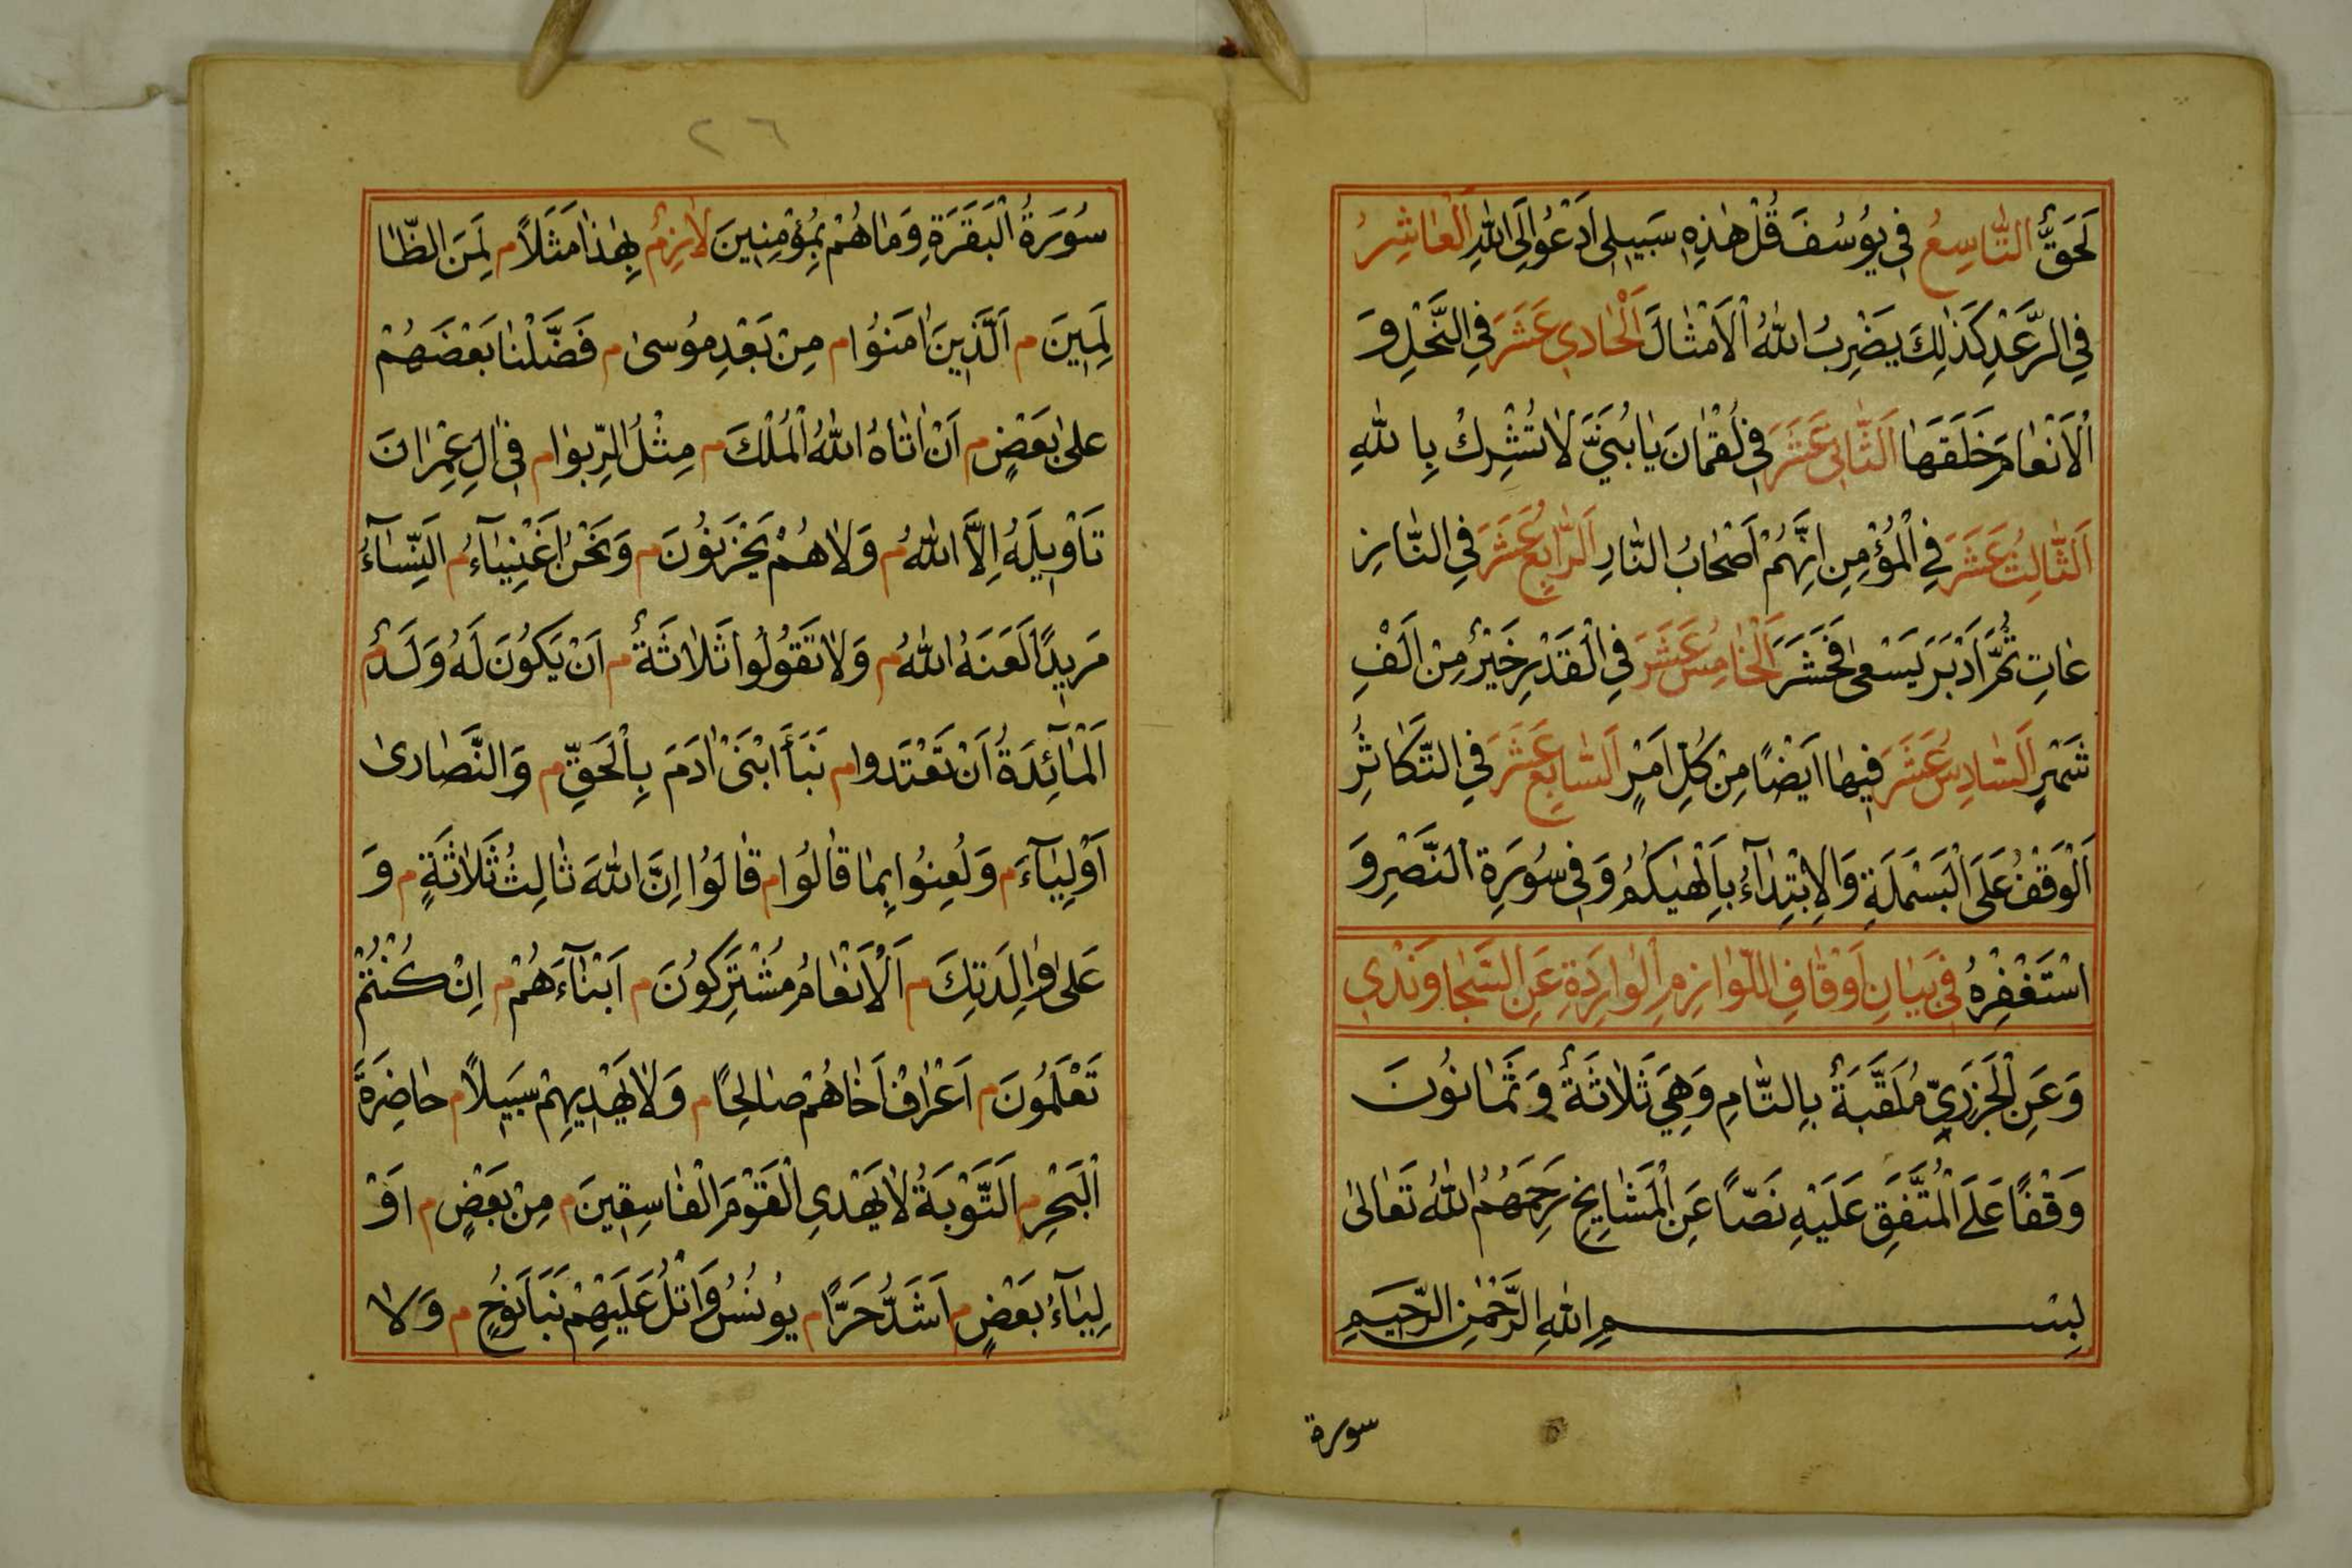 لَحَقٌّ التَّاسِعُ فِي يُوسُفَ قُلْ هٰذِهِ سَبِيلِي اَدْعُوا اِلَى اللّٰهِ الْعَاشِرُ
فِي الرَّعْدِ كَذٰلِكَ يَضْرِبُ اللّٰهُ الْاَمْثَالَ اَلْحَادِي عَشَرَ فِي النَّحْلِ وَ
الْاَنْعَامَ خَلَقَهَا اَلثَّانِي عَشَرَ فِي لُقْمَانَ يَا بُنَيَّ لَا تُشْرِكْ بِاللّٰهِ
اَلثَّالِثُ عَشَرَ فِي الْمُؤْمِنِ اِنَّهُمْ اَصْحَابُ النَّارِ اَلرَّابِعُ عَشَرَ فِي النَّازِ
عَاتِ ثُمَّ اَدْبَرَ يَسْعٰى فَحَشَرَ اَلْخَامِسُ عَشَرَ فِي الْقَدْرِ خَيْرٌ مِنْ اَلْفِ
شَهْرٍ اَلسَّادِسُ عَشَرَ فِيهَا اَيْضًا مِنْ كُلِّ اَمْرٍ اَلسَّابِعُ عَشَرَ فِي التَّكَاثُرِ
اَلْوَقْفُ عَلَى الْبَسْمَلَةِ وَالْاِبْتِدَآءُ بِاَلْهٰيكُمُ وَفِي سُورَةِ النَّصْرِ وَ
اسْتَغْفِرْهُ فِي بَيَانِ اَوْقَافِ اللَّوَازِمِ الْوَارِدَةِ عَنِ السَّجَاوَنْدِي
وَعَنِ الْجَزَرِيِّ مُلَقَّبَةٌ بِالتَّامِ وَهِيَ ثَلَاثَةٌ وَثَمَانُونَ
وَقْفًا عَلَى الْمُتَّفَقِ عَلَيْهِ نَصًّا عَنِ الْمَشَايِخِ رَحِمَهُمُ اللّٰهُ تَعَالٰى
بِسْمِ اللّٰهِ الرَّحْمٰنِ الرَّحِيمِ
سورة
٢٦
سُورَةُ الْبَقَرَةِ وَمَا هُمْ بِمُؤْمِنِينَ لَازِمٌ بِهٰذَا مَثَلًا م لَمِنَ الظَّا
لِمِينَ م اَلَّذِينَ اٰمَنُوا م مِنْ بَعْدِ مُوسٰى م فَضَّلْنَا بَعْضَهُمْ
عَلٰى بَعْضٍ م اَنْ اٰتَاهُ اللّٰهُ الْمُلْكَ م مِثْلُ الرِّبٰوا م فِي اٰلِ عِمْرَانَ
تَاْوِيلَهُ اِلَّا اللّٰهُ م وَلَا هُمْ يَحْزَنُونَ م وَنَحْنُ اَغْنِيَآءُ م اَلنِّسَآءُ
مَرِيدًا لَعَنَهُ اللّٰهُ م وَلَا تَقُولُوا ثَلَاثَةٌ م اَنْ يَكُونَ لَهُ وَلَدٌ م
اَلْمَآئِدَةُ اَنْ تَعْتَدُوا م نَبَأَ ابْنَيْ اٰدَمَ بِالْحَقِّ م وَالنَّصَارٰى
اَوْلِيَآءَ م وَلُعِنُوا بِمَا قَالُوا م قَالُوا اِنَّ اللّٰهَ ثَالِثُ ثَلَاثَةٍ م وَ
عَلٰى وَالِدَتِكَ م اَلْاَنْعَامُ مُشْتَرِكُونَ م اَبْنَآءَهُمْ م اِنْ كُنْتُمْ
تَعْلَمُونَ م اَعْرَافْ اَخَاهُمْ صَالِحًا م وَلَا يَهْدِيهِمْ سَبِيلًا م حَاضِرَةَ
الْبَحْرِ م اَلتَّوْبَةُ لَا يَهْدِي الْقَوْمَ الْفَاسِقِينَ م مِنْ بَعْضٍ م اَوْ
لِيَآءُ بَعْضٍ م اَشَدُّ حَرًّا م يُونُسُ وَاتْلُ عَلَيْهِمْ نَبَاَ نُوحٍ م وَلَا